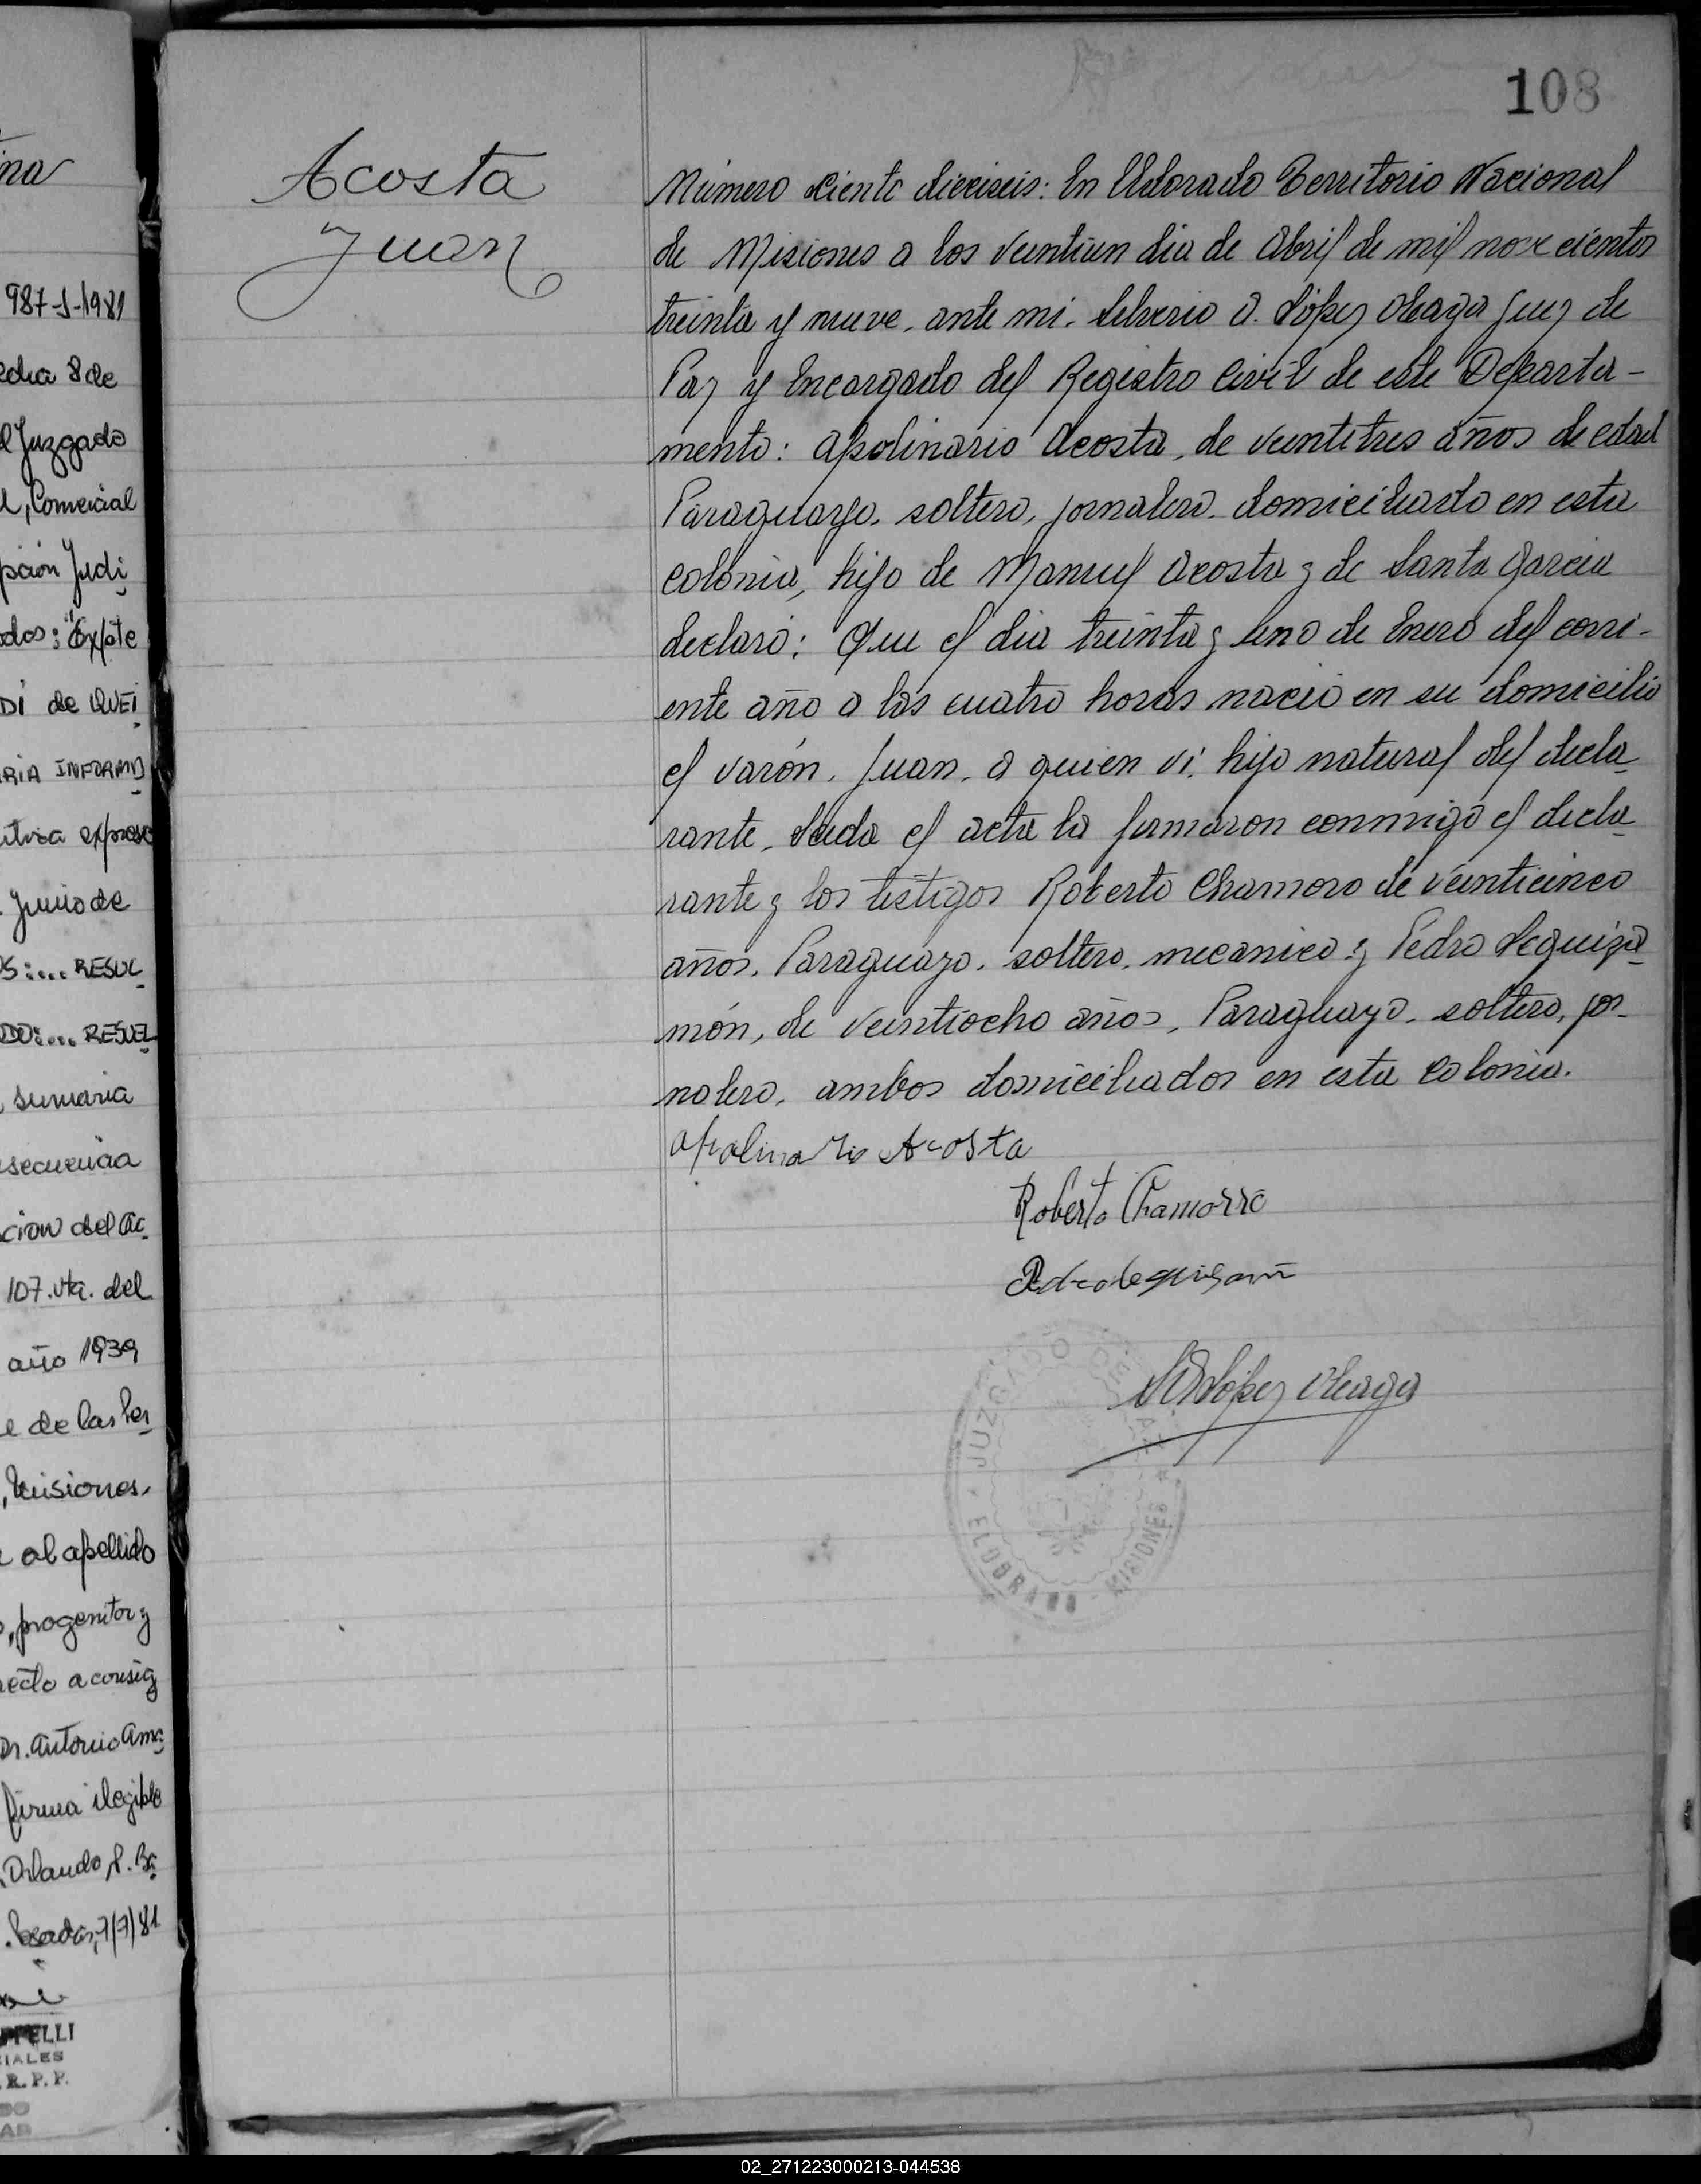 108
Acosta
Juan
Número ciento dieciseis: En Eldorado Territorio Nacional
de Misiones a los veintiun dia de Abril de mil novecientos
treinta y nueve, ante mi, Silverio A. López Oleaga Juez de
Paz y Encargado del Registro Civil de este Departa-
mento: Apolinario Acosta, de veintitres años de edad
Paraguayo, soltero, jornalero, domiciliado en esta
colonia, hijo de Manuel Acosta y de Santa Garcia
declaró: Que el dia treinta y uno de Enero del corri-
ente año a las cuatro horas nació en su domicilio
el varón, Juan, a quien ví, hijo natural del decla
rante, Leida el acta la firmaron conmigo el decla
rante y los testigos Roberto Chamoro de veinticinco
años, Paraguayo, soltero, mecanico y Pedro Leguiza
món, de veintiocho años, Paraguayo, soltero, jor-
nalero, ambos domiciliados en esta colonia.
Apolinario Acosta
Roberto Chamorro
Pedro Leguisamón
López Oleaga
JUZGADO DE PAZ
ELDORADO - MISIONES
987-J-1981
8 de
Juzgado
, Comercial
Judi
: "Expte
DI de QUEI
INFORMA
. Junio de
:... RESUL
:... RESUEL
sumaria
del Ac
107.vta. del
año 1939
de las Per
, Misiones,
al apellido
, progenitor y
a consig
Dr. Antonio Ama
firma ilegible
Orlando
7/7/81
R. P. P.
02_271223000213-044538